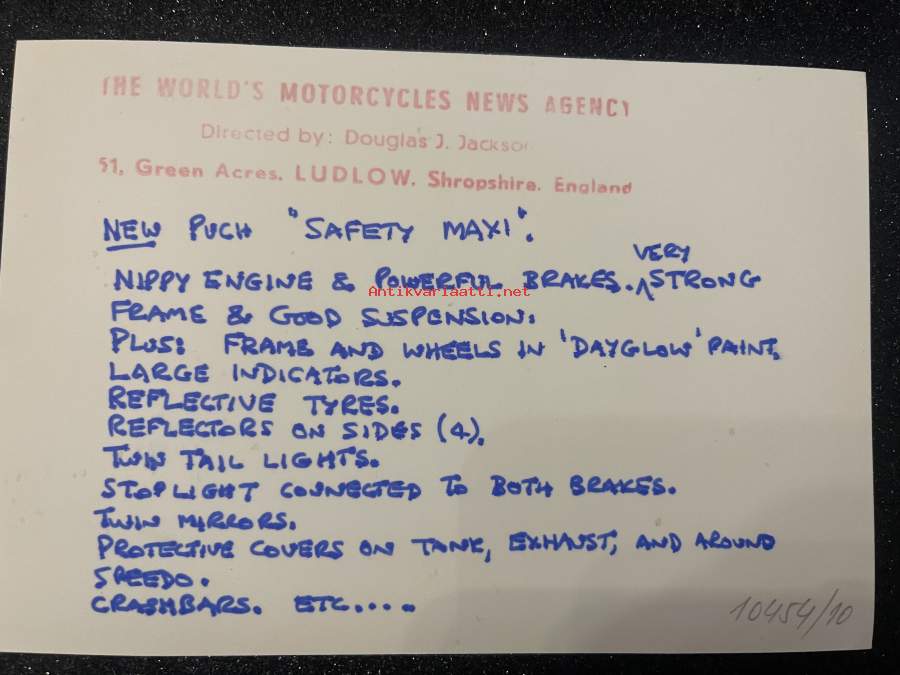 THE WORLD'S MOTORCYCLES NEWS AGENCY
Directed by: Douglas J. Jackson
51, Green Acres, LUDLOW, Shropshire, England
NEW PUCH "SAFETY MAXI".
NIPPY ENGINE & POWERFUL BRAKES. VERY STRONG
Antikvariaatti.net
FRAME & GOOD SUSPENSION.
PLUS: FRAME AND WHEELS IN 'DAYGLOW' PAINT.
LARGE INDICATORS.
REFLECTIVE TYRES.
REFLECTORS ON SIDES (4).
TWIN TAIL LIGHTS.
STOPLIGHT CONNECTED TO BOTH BRAKES.
TWIN MIRRORS.
PROTECTIVE COVERS ON TANK, EXHAUST, AND AROUND
SPEEDO.
CRASHBARS. ETC.....
10454/10